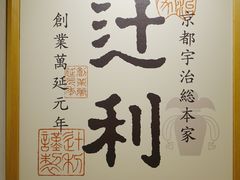 京都宇治総本家
辻利
創業萬延元年